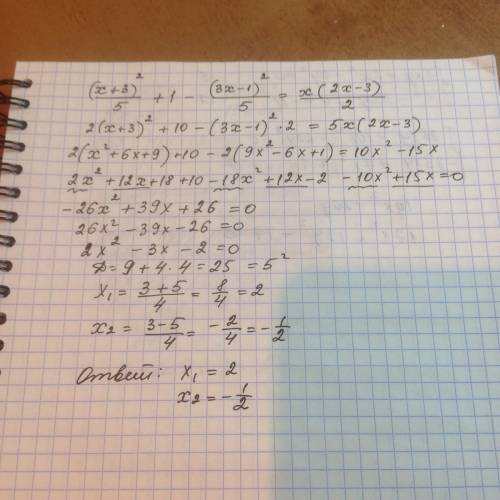 (x+3)²/5 + 1 - (3x-1)²/5 = x(2x-3)/2
2(x+3)² + 10 - (3x-1)²·2 = 5x(2x-3)
2(x²+6x+9)+10 - 2(9x²-6x+1) = 10x²-15x
2x²+12x+18+10-18x²+12x-2 -10x²+15x=0
-26x²+39x+26=0
26x²-39x-26=0
2x²-3x-2=0
D=9+4·4=25=5²
x₁ = (3+5)/4 = 8/4 = 2
x₂ = (3-5)/4 = -2/4 = -1/2
Ответ: x₁ = 2
x₂ = -1/2